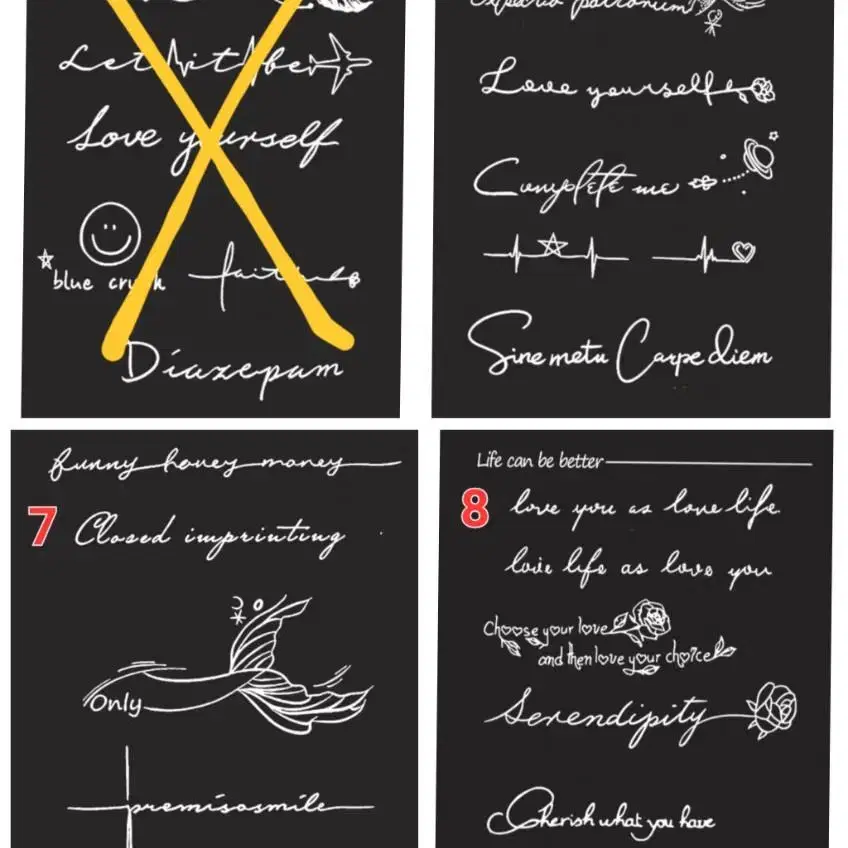 Let it be
Love yourself
blue cr
faith
Diazepam
expecto patronum
Love yourself
Complete me
Sine metu Carpe diem
funny honey money
7
Closed imprinting
Only
premisasmile
Life can be better
8
love you as love life.
love life as love you
Choose your love
and then love your cho?ce
Serendipity
Cherish what you have